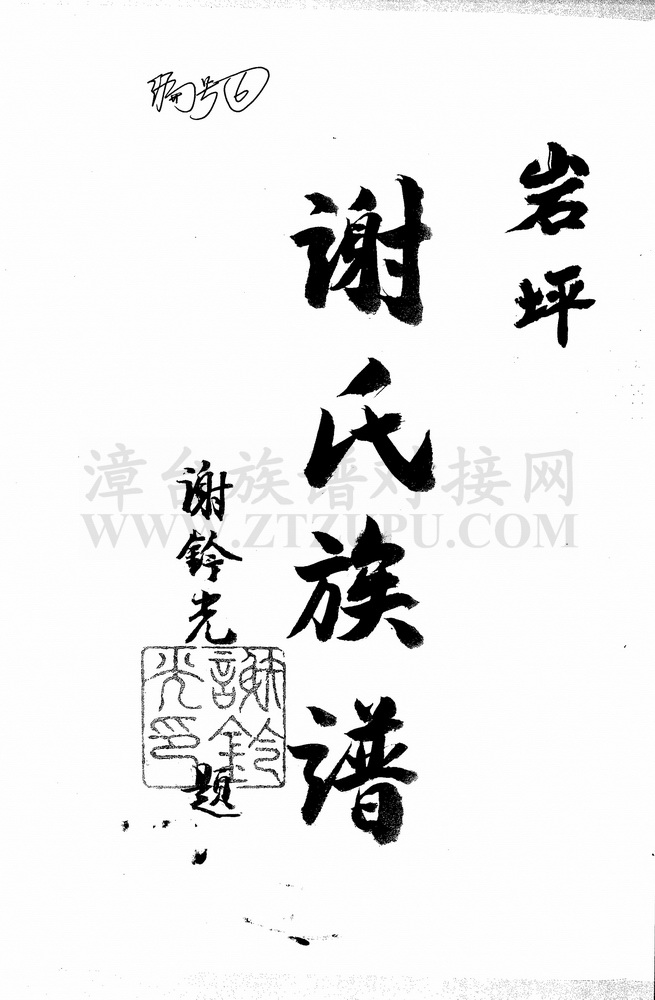 编号6
岩坪
谢氏族谱
谢铃光
题
謝鈴光印
漳台族谱对接网
WWW.ZTZUPU.COM